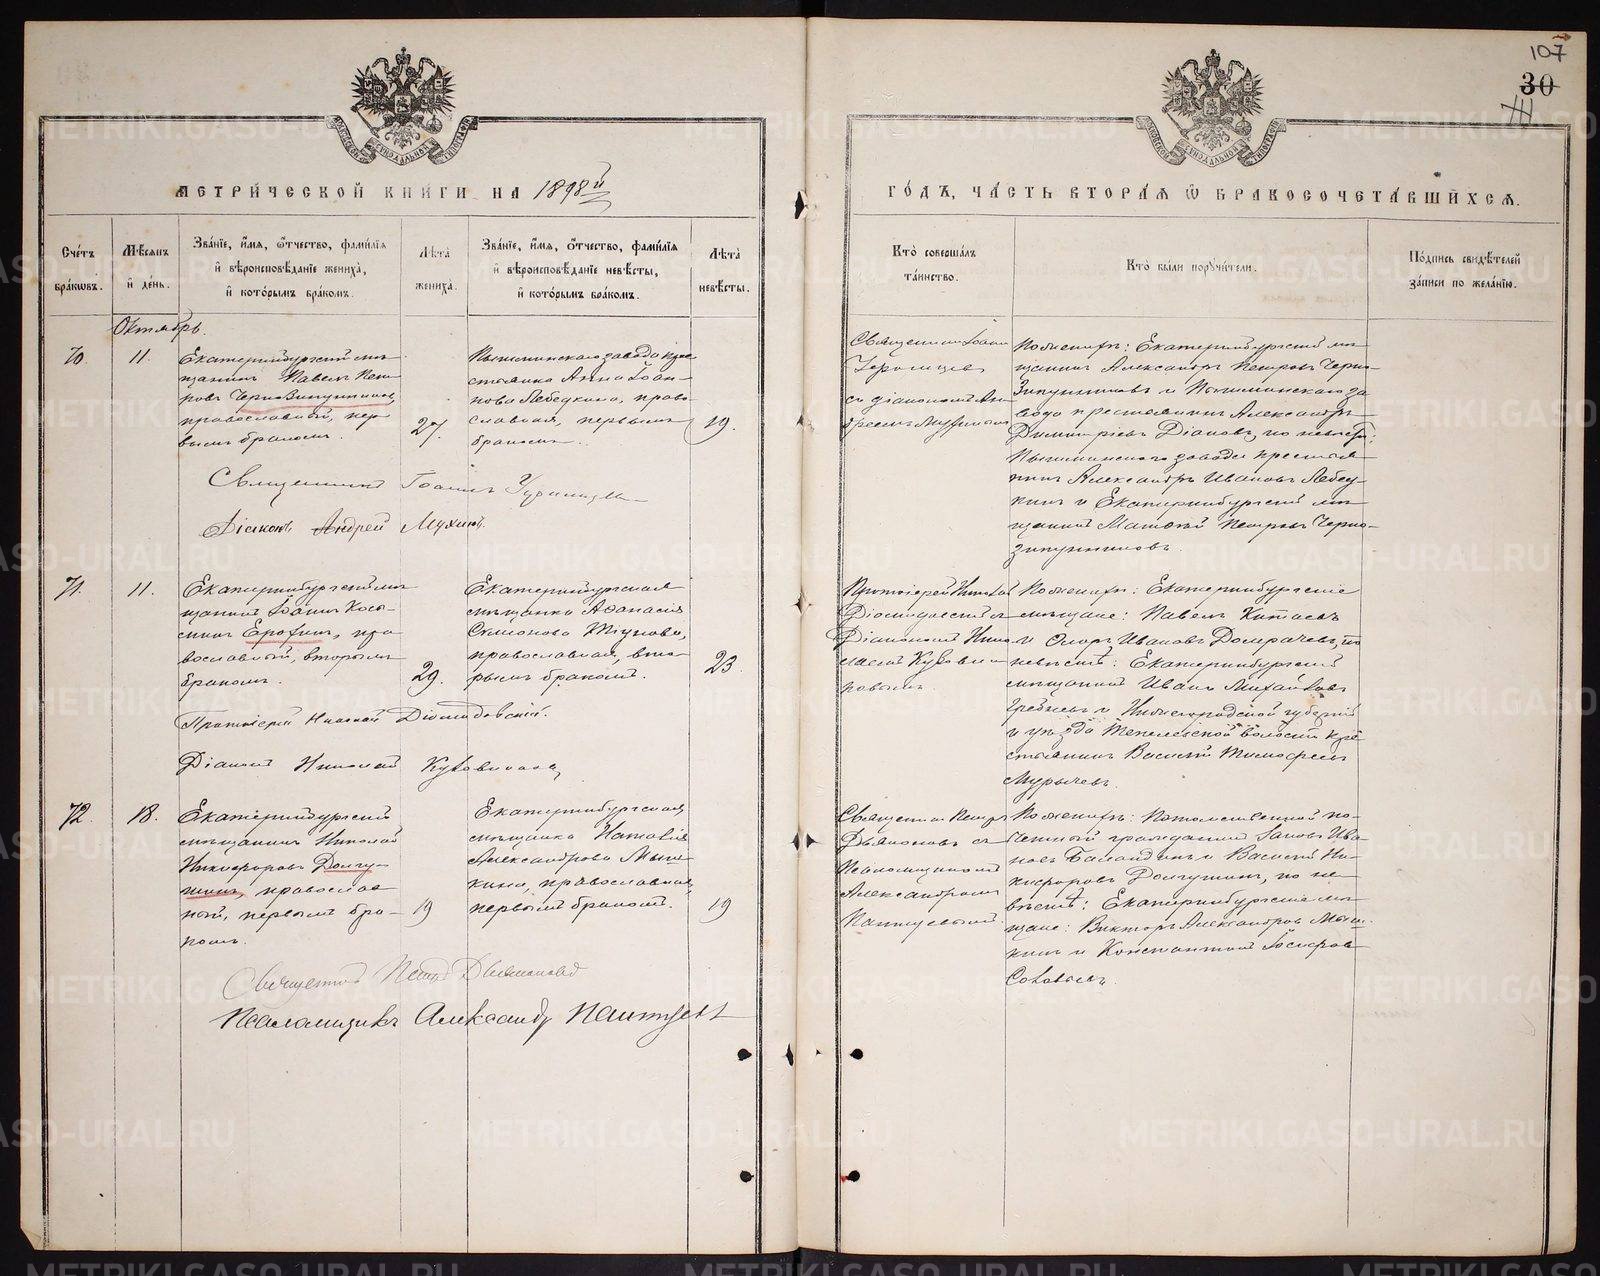 107
30
МЕТРИ́ЧЕСКОЙ КНИ́ГИ НА 1898й
ГО́ДЪ, ЧА́СТЬ ВТОРА́Я Ѡ҆ БРАКОСОЧЕТА́ВШИХСЯ.
Сче́тъ бра́кѡвъ.
Мѣ́сяцъ и҆ де́нь.
Зва́нїе, и҆́мя, ѻ҆́тчество, фами́лїя
и҆ вѣроисповѣ́данїе жениха̀,
и҆ кото́рымъ бра́комъ.
Лѣ́та жениха̀.
Зва́нїе, и҆́мя, ѻ҆́тчество, фами́лїя
и҆ вѣроисповѣ́данїе невѣ́сты,
и҆ кото́рымъ бра́комъ.
Лѣ́та невѣ́сты.
Кто̀ соверша́лъ та́инство.
Кто̀ бы́ли порꙋчи́тели.
По́дпись свидѣ́телей за́писи по жела́нїю.
Октябрь.
70.
11.
Екатеринбургскій мѣ-
щанинъ Павелъ Пет-
ровъ Чернозипунниковъ,
православный, пер-
вымъ бракомъ.
27.
Пышминскаго завода кре-
стьянка Анна Іоан-
нова Лебедкина, право-
славная, первымъ
бракомъ.
19.
Священникъ Іоаннъ
съ діакономъ Ан-
дреемъ Мухинымъ
По женихѣ: Екатеринбургскій мѣ-
щанинъ Александръ Петровъ Черно-
зипунниковъ и Пышминскаго за-
вода крестьянинъ Александръ
Димитріевъ Діановъ, по невѣстѣ:
Пышминскаго завода крестья-
нинъ Александръ Ивановъ Лебед-
кинъ и Екатеринбургскій мѣ-
щанинъ Матвѣй Петровъ Черно-
зипунниковъ.
Священникъ Іоаннъ
Діаконъ Андрей Мухинъ.
71.
11.
Екатеринбургскій мѣ-
щанинъ Іоаннъ Кось-
минъ Ерофинъ, пра-
вославный, вторымъ
бракомъ.
29.
Екатеринбургская
мѣщанка Аѳанасія
Семіонова Тіунова,
православная, вто-
рымъ бракомъ.
23.
Протоіерей Николай
Діомидовскій съ
Діакономъ Нико-
лаемъ Кубовин-
ровымъ.
По женихѣ: Екатеринбургскіе
мѣщане: Павелъ Китаевъ
и Ѳеодоръ Ивановъ Домрачевъ, по
невѣстѣ: Екатеринбургскій
мѣщанинъ Иванъ Михайловъ
Гребневъ и Нижегородской губерніи
и уѣзда Тепелевской волости кре-
стьянинъ Василій Тимофеевъ
Мурычевъ.
Протоіерей Николай Діомидовскій.
Діаконъ Николай
72.
18.
Екатеринбургскій
мѣщанинъ Николай
Никифоровъ Долгу-
шинъ, православ-
ный, первымъ бра-
комъ.
19
Екатеринбургская
мѣщанка Наталія
Александрова Мыш-
кина, православная,
первымъ бракомъ.
19
Священникъ Петръ
Дьяконовъ съ
Псаломщикомъ
Александромъ
По женихѣ: Потомственный по-
четный гражданинъ Іаковъ Ива-
новъ Баландинъ и Василій Ни-
кифоровъ Долгушинъ, по не-
вѣстѣ: Екатеринбургскіе мѣ-
щане: Викторъ Александровъ Мыш-
кинъ и Константинъ Іосифовъ
Соловьевъ.
Священникъ Петръ Дьяконовъ
Псаломщикъ Александръ
METRIKI.GASO-URAL.RU